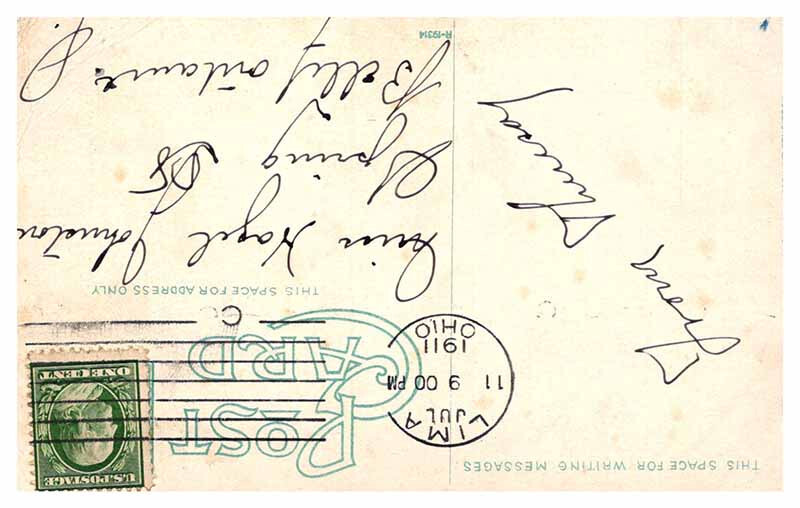 THIS SPACE FOR WRITING MESSAGES
From Theresa
POST
CARD
LIMA
JUL
11 9 00 PM
1911
OHIO
C
U.S. POSTAGE
ONE CENT
THIS SPACE FOR ADDRESS ONLY
Miss Hazel Johnston
Spring St
Bellefontaine
O.
R-19314